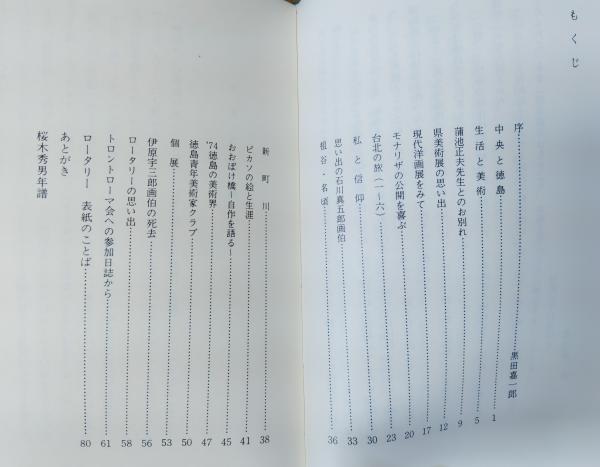 もくじ
序 黒田嘉一郎
中央と徳島 1
生活と美術 5
蒲池正夫先生とのお別れ 9
県美術展の思い出 12
現代洋画展をみて 17
モナリザの公開を喜ぶ 20
台北の旅(一〜六) 23
私と信仰 30
思い出の石川真五郎画伯 33
祖谷・名頃 36
新町川 38
ピカソの絵と生涯 41
おおぼけ橋―自作を語る― 45
'74徳島の美術界 47
徳島青年美術家クラブ 50
個展 53
伊原宇三郎画伯の死去 56
ロータリーの思い出 58
トロントローマ会への参加日誌から 61
ロータリー 表紙のことば 80
あとがき
桜木秀男年譜